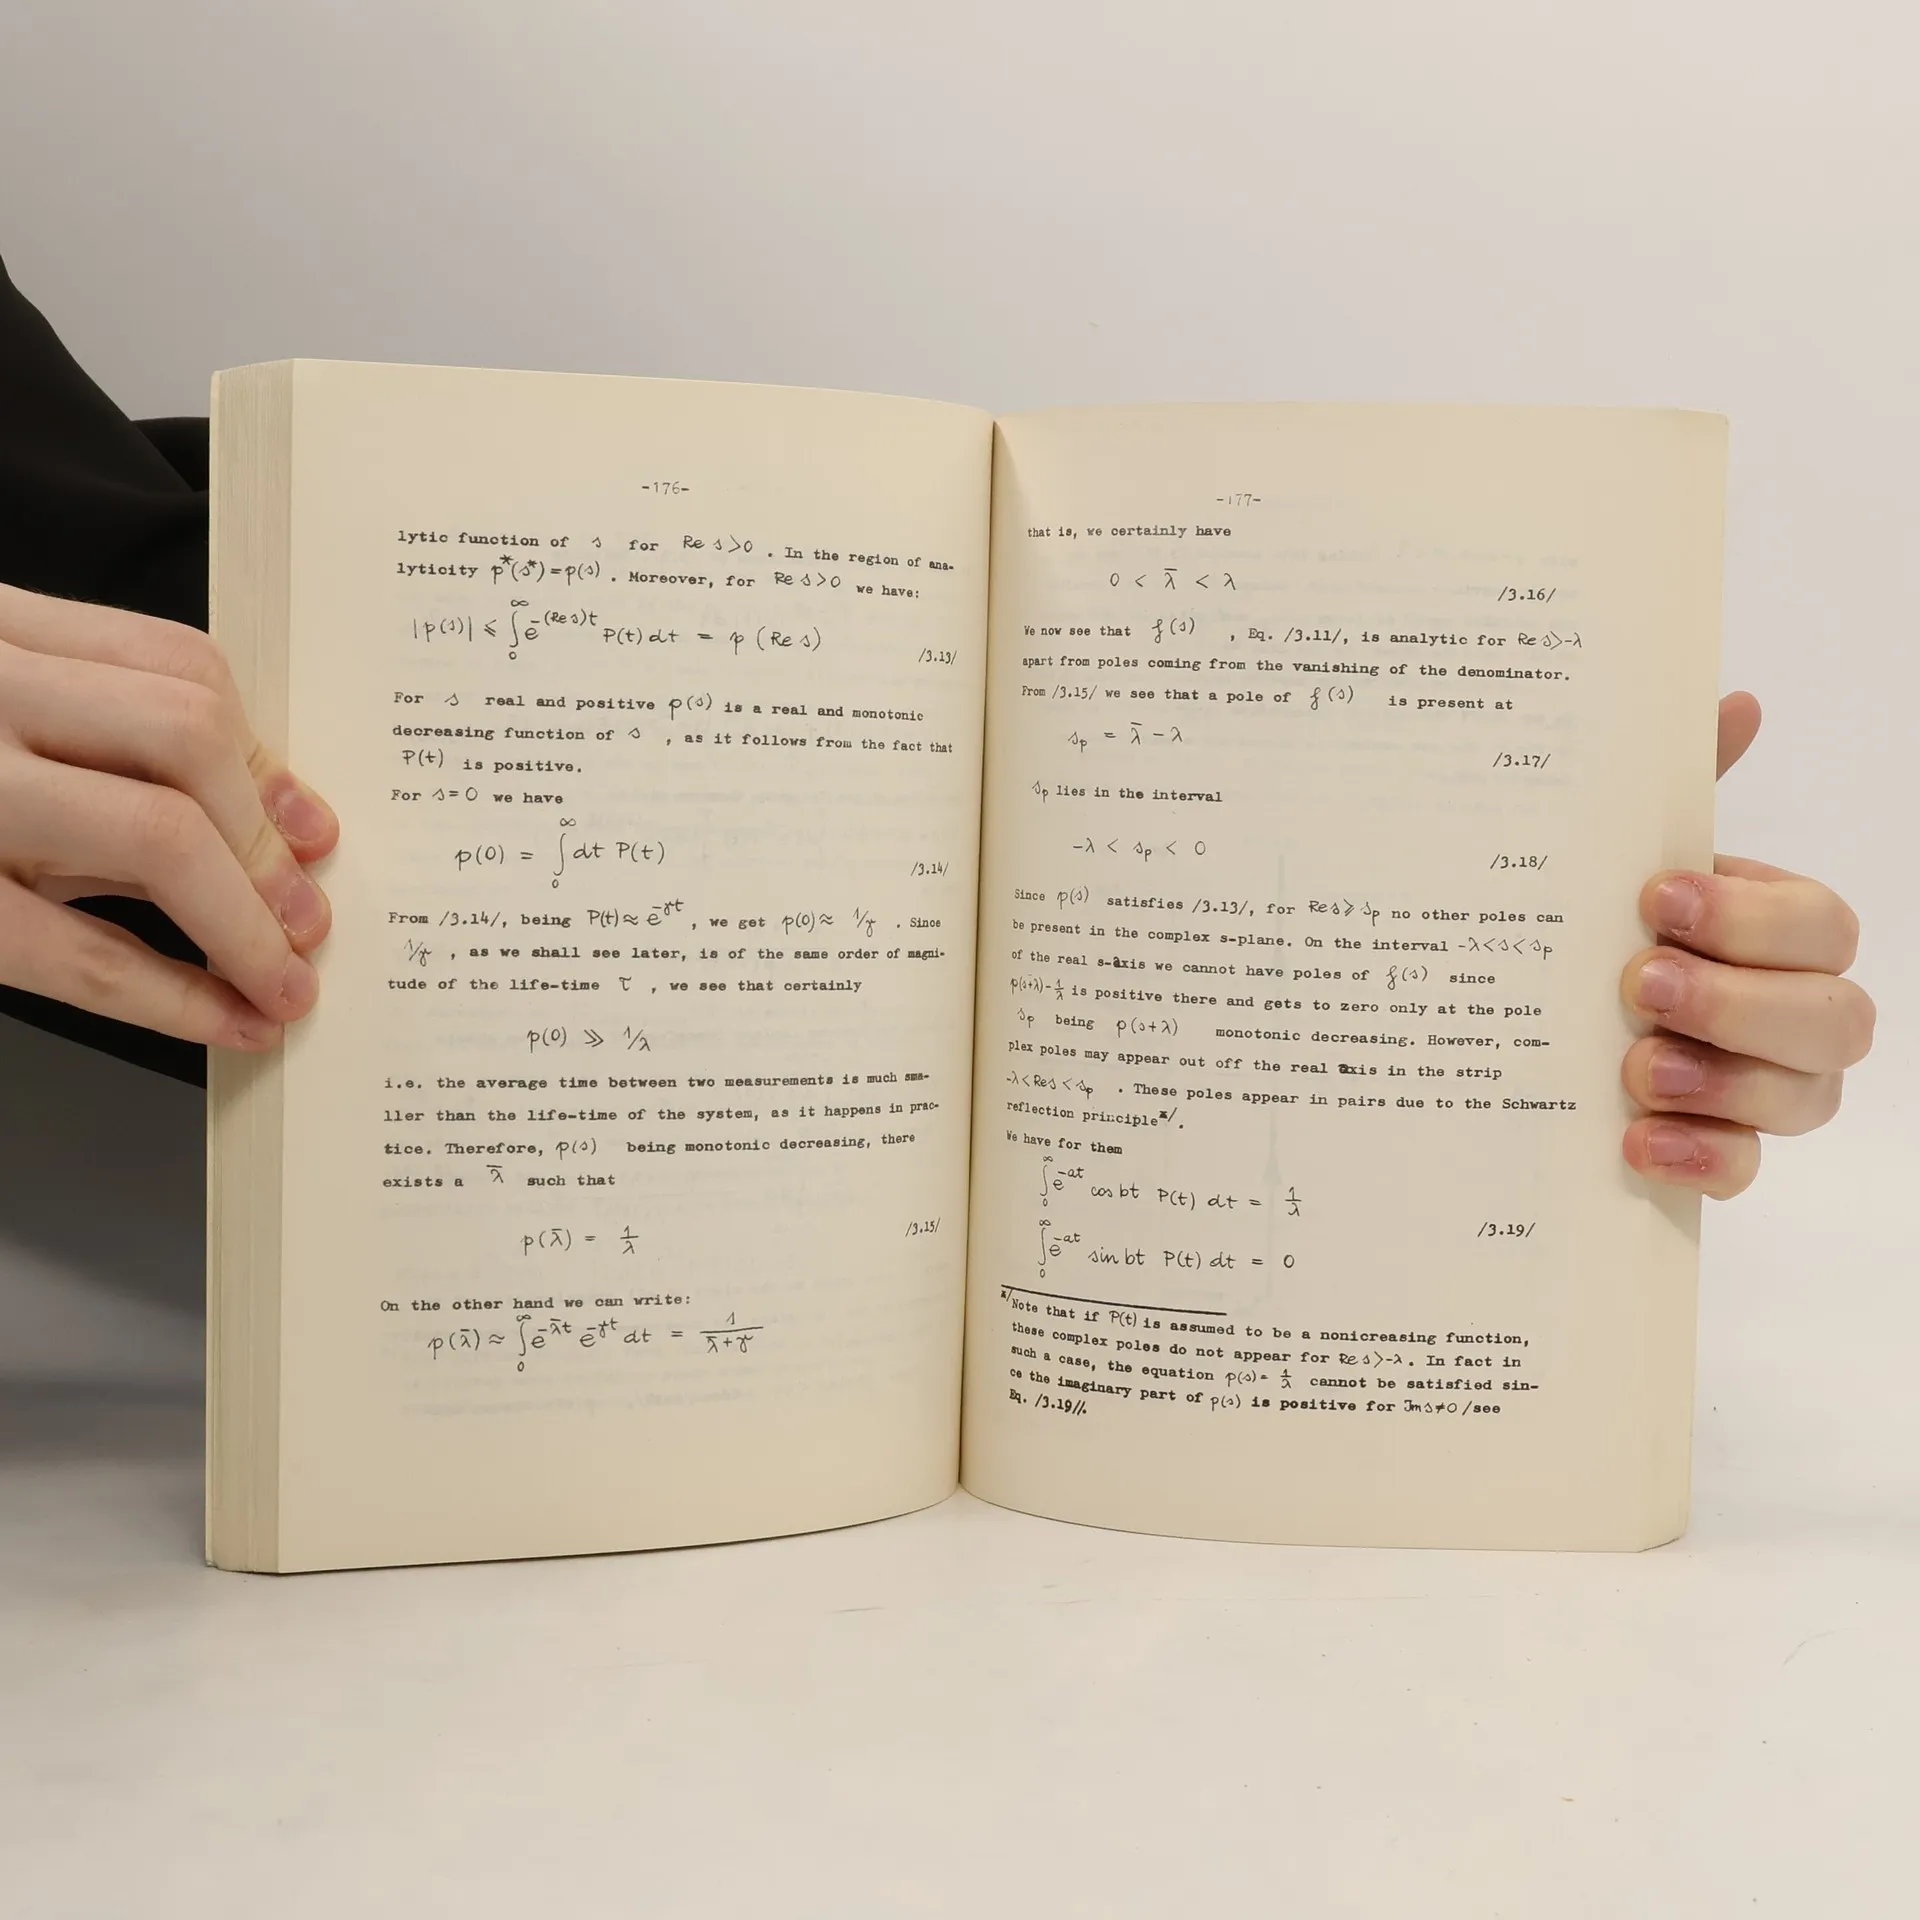 -176-
lytic function of s for Re s>0 . In the region of ana-
lyticity p*(s*)=p(s) . Moreover, for Re s>0 we have:
|p(s)| ⩽ ∫₀^∞ e^-(Re s)t P(t) dt = p (Re s) /3.13/
For s real and positive p(s) is a real and monotonic
decreasing function of s , as it follows from the fact that
P(t) is positive.
For s=0 we have
p(0) = ∫₀^∞ dt P(t) /3.14/
From /3.14/, being P(t)≈ e^-γt , we get p(0)≈ 1/γ . Since
1/γ , as we shall see later, is of the same order of magni-
tude of the life-time τ , we see that certainly
p(0) ≫ 1/λ
i.e. the average time between two measurements is much sma-
ller than the life-time of the system, as it happens in prac-
tice. Therefore, p(s) being monotonic decreasing, there
exists a λ̄ such that
p(λ̄) = 1/λ /3.15/
On the other hand we can write:
p(λ̄) ≈ ∫₀^∞ e^-λ̄t e^-γt dt = 1/(λ̄+γ)
-177-
that is, we certainly have
0 < λ̄ < λ /3.16/
We now see that f(s) , Eq. /3.11/, is analytic for Re s>-λ
apart from poles coming from the vanishing of the denominator.
From /3.15/ we see that a pole of f(s) is present at
s_p = λ̄ - λ /3.17/
s_p lies in the interval
-λ < s_p < 0 /3.18/
Since p(s) satisfies /3.13/, for Re s⩾ s_p no other poles can
be present in the complex s-plane. On the interval -λ<s<s_p
of the real s-axis we cannot have poles of f(s) since
p(s+λ)-1/λ is positive there and gets to zero only at the pole
s_p being p(s+λ) monotonic decreasing. However, com-
plex poles may appear out off the real axis in the strip
-λ<Re s<s_p . These poles appear in pairs due to the Schwartz
reflection principle ˣ/.
We have for them
∫₀^∞ e^-at cos bt P(t) dt = 1/λ
/3.19/
∫₀^∞ e^-at sin bt P(t) dt = 0
ˣ/Note that if P(t) is assumed to be a nonicreasing function,
these complex poles do not appear for Re s>-λ. In fact in
such a case, the equation p(s)= 1/λ cannot be satisfied sin-
ce the imaginary part of p(s) is positive for Im s≠0 /see
Eq. /3.19//.